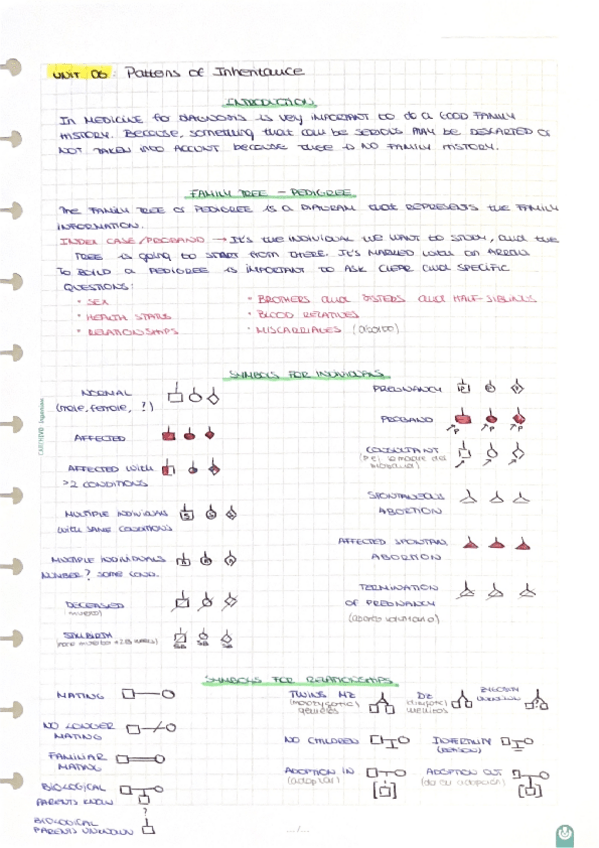 UNIT 06: Patterns of Inheritance
INTRODUCTION
IN MEDICINE for DIAGNOSIS is very IMPORTANT to do a GOOD FAMILY
HISTORY. Because, something that could be SERIOUS MAY be DESCARTED or
NOT TAKEN INTO ACCOUNT because there is NO FAMILY HISTORY.
FAMILY TREE - PEDIGREE
The FAMILY TREE or PEDIGREE IS A DIAGRAM that REPRESENTS the FAMILY
INFORMATION.
INDEX CASE/PROBAND → It's the INDIVIDUAL we WANT to STUDY, and the
TREE is going to START from THERE. It's MARKED with an ARROW
TO BUILD a PEDIGREE is IMPORTANT TO ASK CLEAR and SPECIFIC
QUESTIONS:
• SEX
• HEALTH STATUS
• RELATIONSHIPS
• BROTHERS and SISTERS and HALF-SIBLINGS
• BLOOD RELATIVES
• MISCARRIAGES (aborto)
SYMBOLS FOR INDIVIDUALS
NORMAL
(male, female, ?)
AFFECTED
AFFECTED with
>2 CONDITIONS
MULTIPLE INDIVIDUALS
with SAME CONDITIONS
5 5 5
MULTIPLE INDIVIDUALS
NUMBER? SAME COND.
n n n
DECEASED
(muerto)
STILLBIRTH
SB SB SB
PREGNANCY
P P P
PROBAND
P P P
CONSULTANT
SPONTANEOUS
ABORTION
AFFECTED SPONTAN.
ABORTION
TERMINATION
OF PREGNANCY
(aborto voluntario)
SYMBOLS FOR RELATIONSHIPS
MATING
NO LONGER
MATING
FAMILIAR
MATING
BIOLOGICAL
PARENTS KNOWN
?
BIOLOGICAL
PARENTS UNKNOWN
TWINS MZ
(monozygotic)
gemelos
DZ
(dizygotic)
mellizos
ZYGOSITY
UNKNOWN
?
NO CHILDREN
INFERTILITY
ADOPTION IN
(adoptar)
ADOPTION OUT
(da en adopción)
.../...